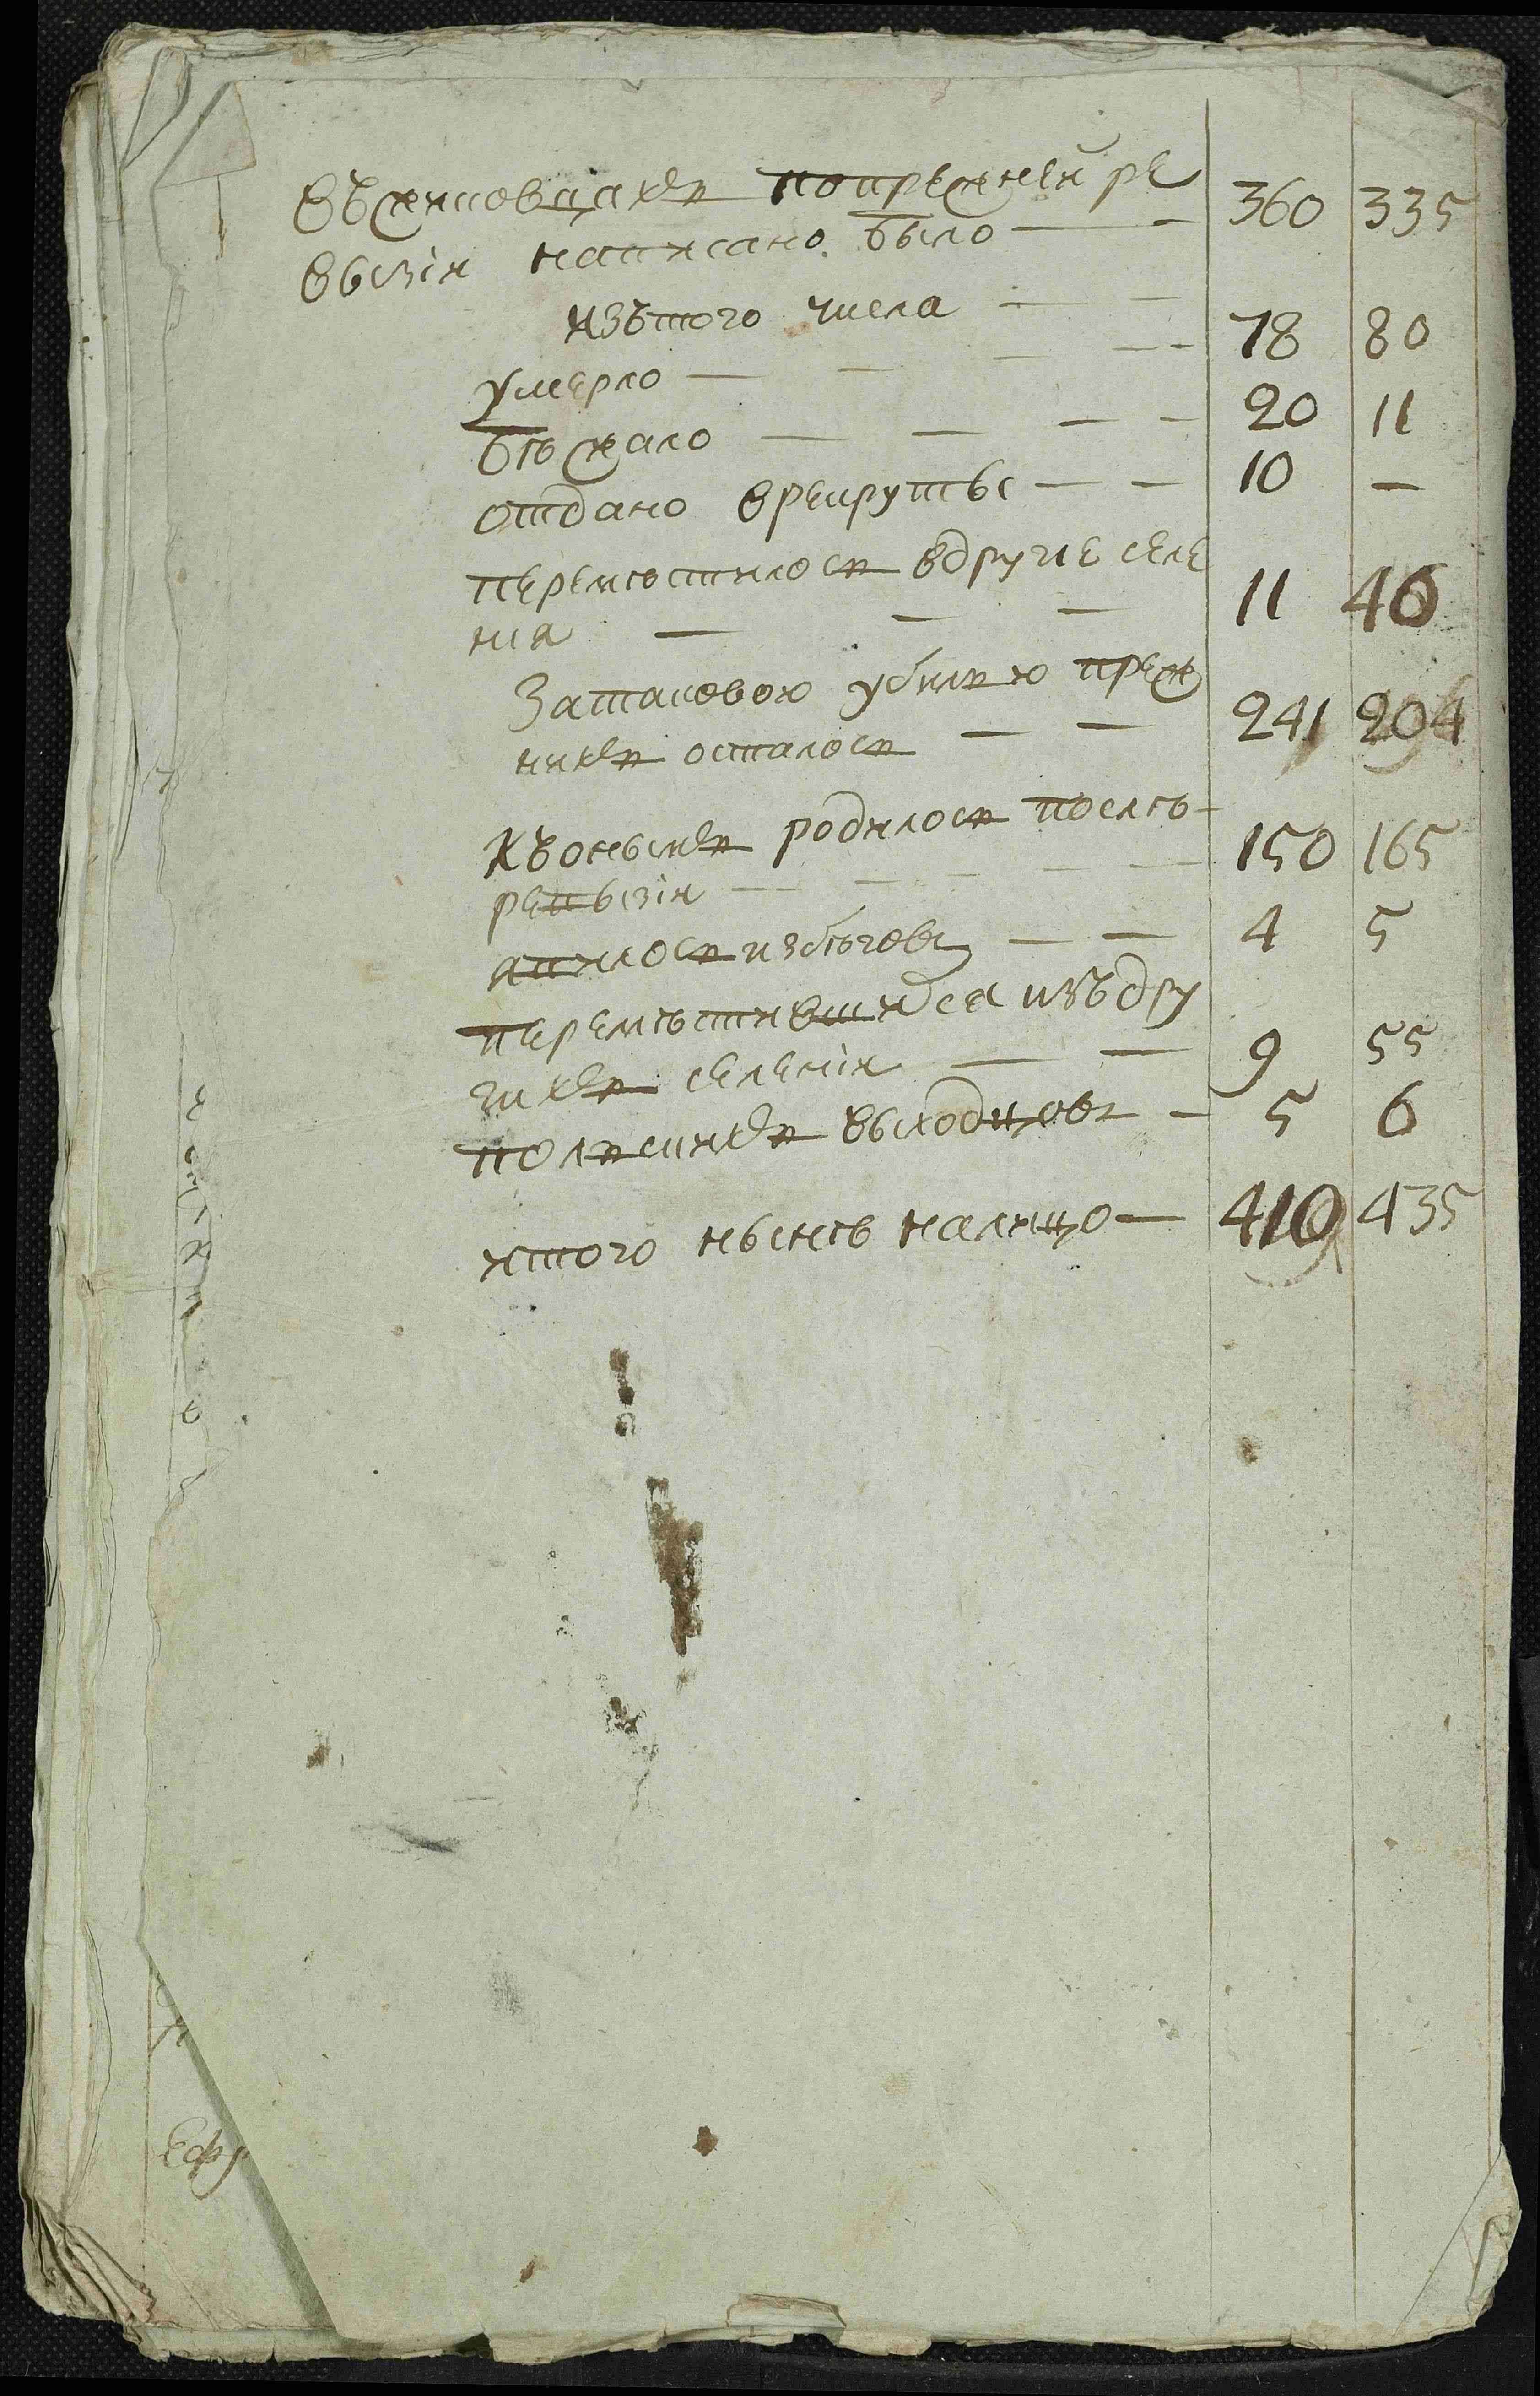 въжиловцахъ попрежней ре
вызiи написано было — — 360 335
изътого числа — —
умерло — — — — 78 80
бѣжало — — — — 20 11
отдано врекруты — — 10 —
перемѣстилось вдругие селе
ниа — — — 11 46
Затаковою убылью преж
нихъ осталось — — 241 204
Къонымъ родилось послѣ
ревызiи — — — — — 150 165
явилось избѣговъ — — 4 5
перемѣстившихся изъдру
гихъ селенiи — — 9 55
польскихъ выходцовъ — 5 6
итого нынѣ налицо — 410 435
Ефр